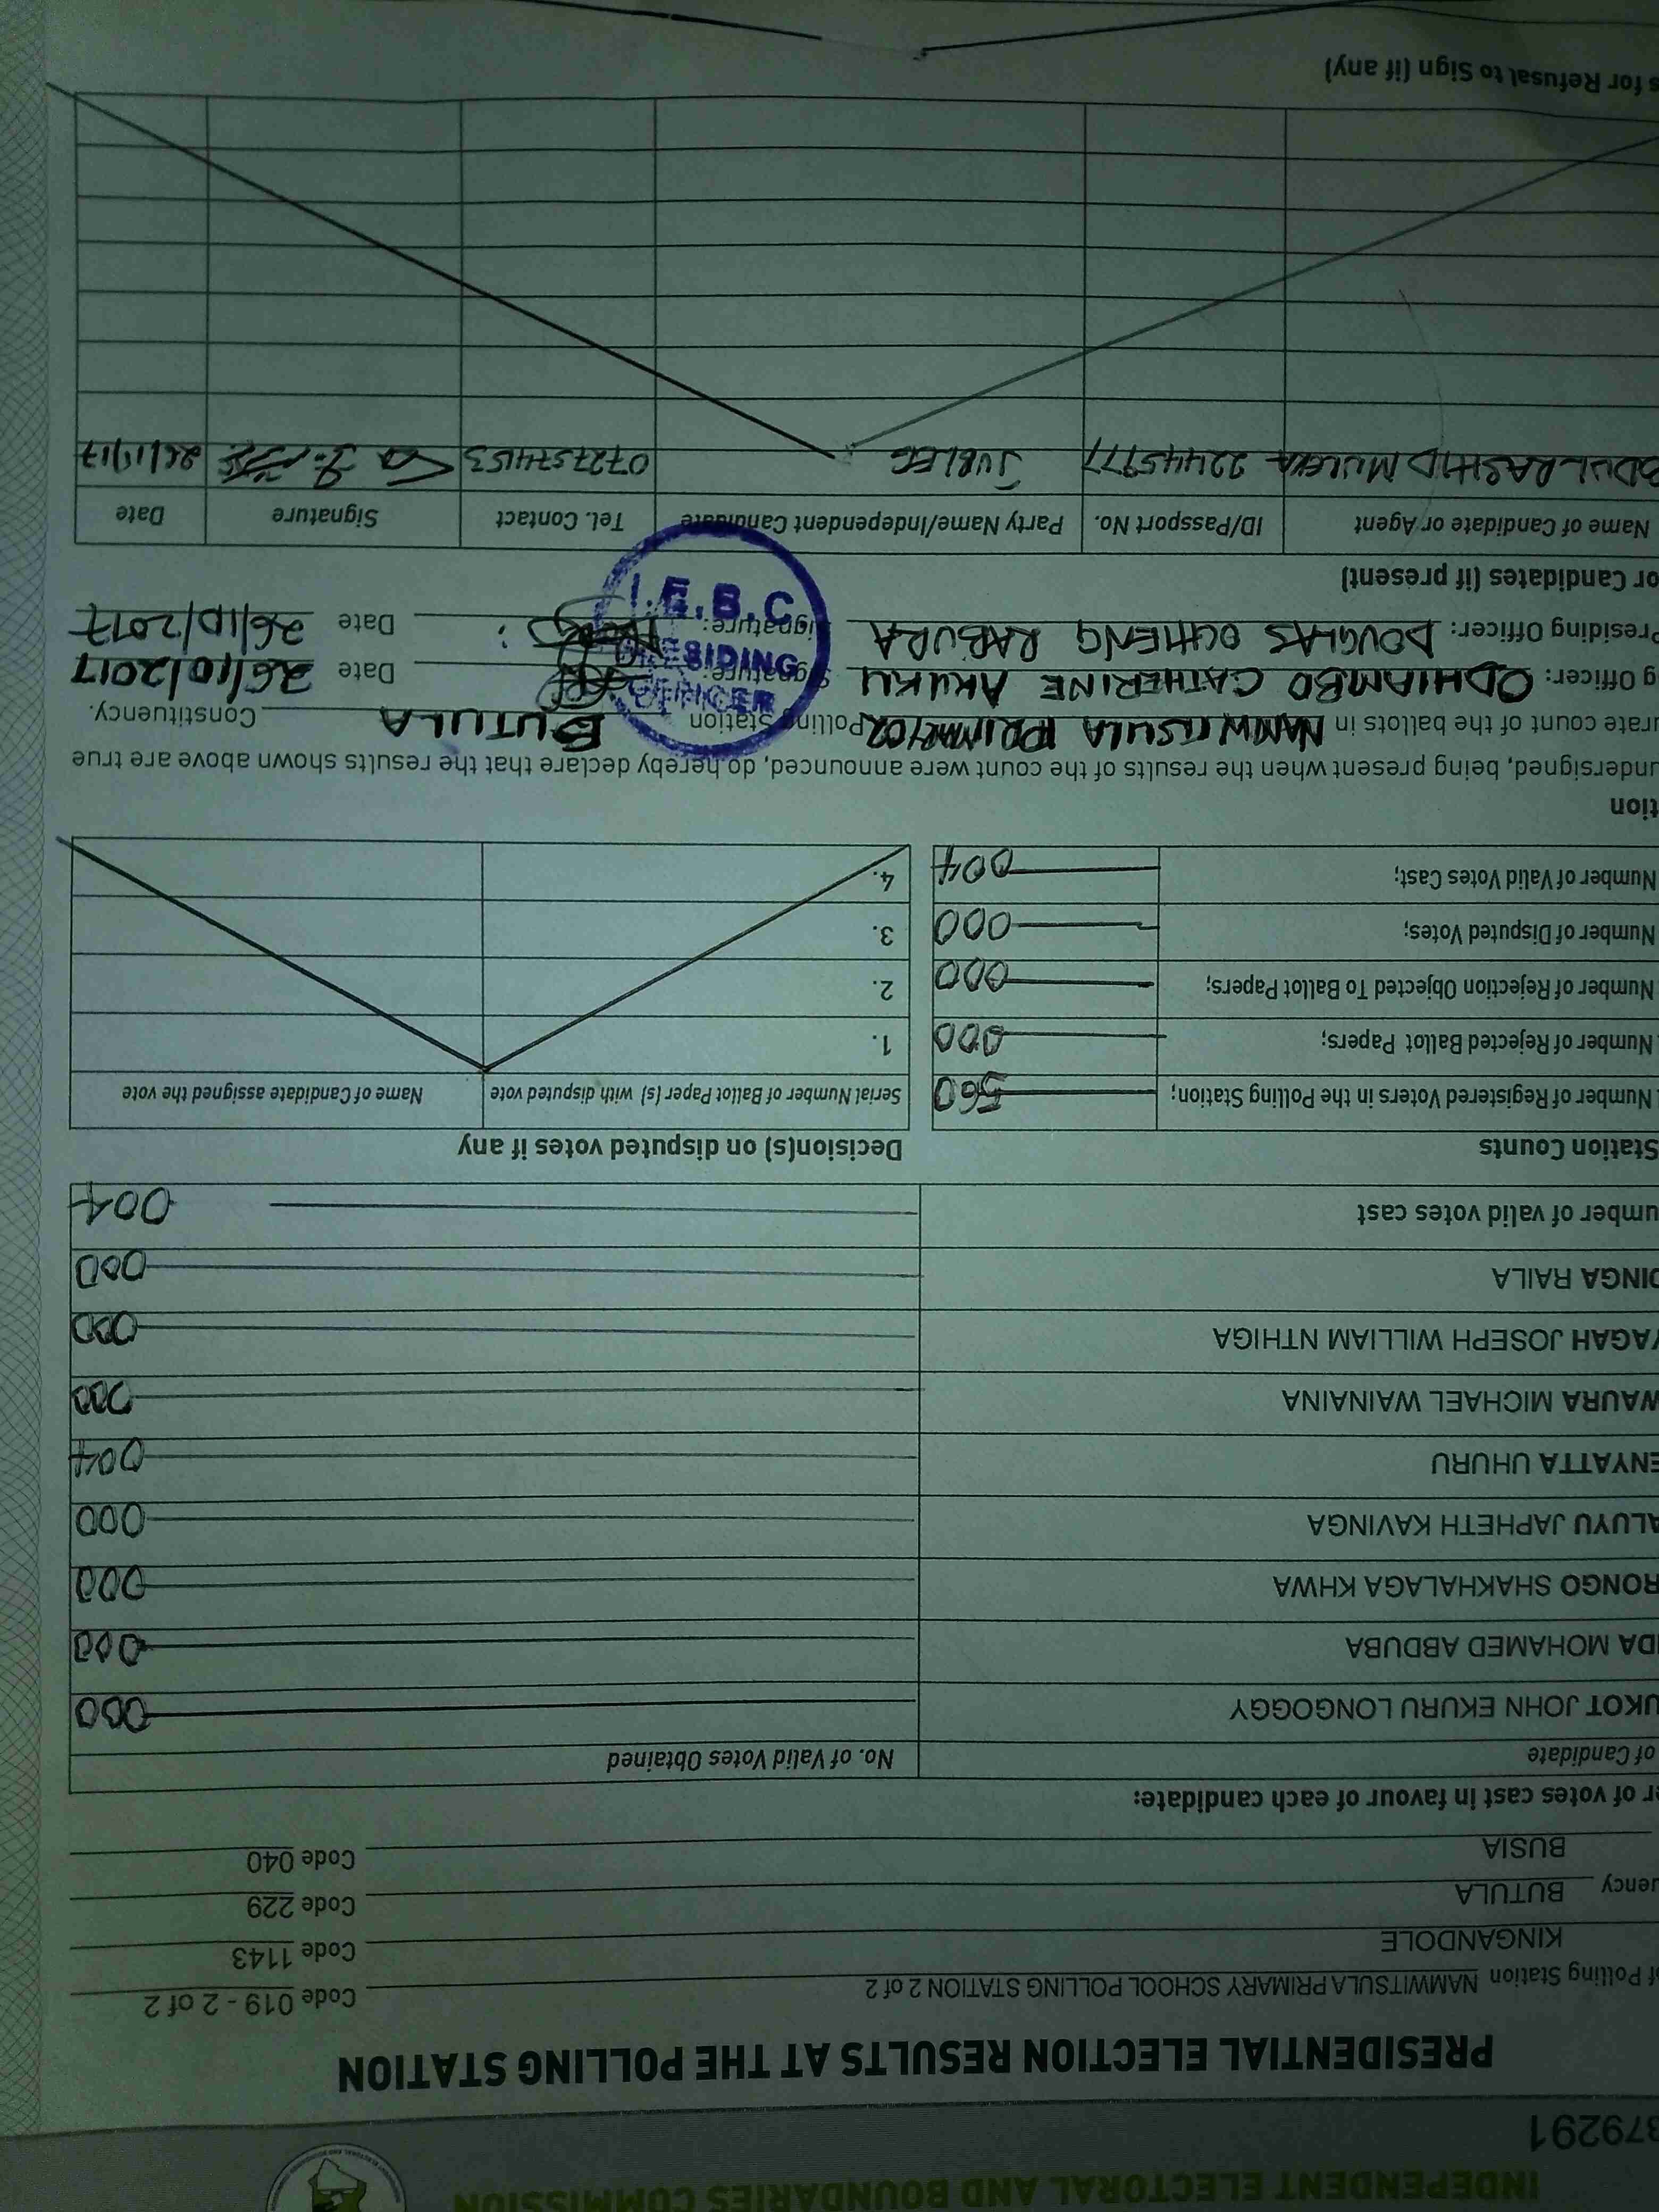 INDEPENDENT ELECTORAL AND BOUNDARIES COMMISSION
379291
PRESIDENTIAL ELECTION RESULTS AT THE POLLING STATION
f Polling Station NAMWITSULA PRIMARY SCHOOL POLLING STATION 2 of 2 Code 019 - 2 of 2
KINGANDOLE Code 1143
uency BUTULA Code 229
BUSIA Code 040
r of votes cast in favour of each candidate:
of Candidate No. of Valid Votes Obtained
UKOT JOHN EKURU LONGOGGY 000
DA MOHAMED ABDUBA 000
RONGO SHAKHALAGA KHWA 000
ALUYU JAPHETH KAVINGA 000
ENYATTA UHURU 004
WAURA MICHAEL WAINAINA 000
YAGAH JOSEPH WILLIAM NTHIGA 000
DINGA RAILA 000
umber of valid votes cast 004
Station Counts Decision(s) on disputed votes if any
Number of Registered Voters in the Polling Station; 560 Serial Number of Ballot Paper (s) with disputed vote Name of Candidate assigned the vote
Number of Rejected Ballot Papers; 000 1.
Number of Rejection Objected To Ballot Papers; 000 2.
Number of Disputed Votes; 000 3.
Number of Valid Votes Cast; 004 4.
tion
undersigned, being present when the results of the count were announced, do hereby declare that the results shown above are true
urate count of the ballots in Polling Station BUTULA Constituency.
g Officer: ODHIAMBO CATHERINE AKUKU Signature: Date 26/10/2017
Presiding Officer: DOUGLAS OCHIENG RABURA Signature: Date 26/10/2017
I.E.B.C.
PRESIDING
OFFICER
or Candidates (if present)
Name of Candidate or Agent ID/Passport No. Party Name/Independent Candidate Tel. Contact Signature Date
BDUL RASHID 22445977 JUBLEE 0727574153
s for Refusal to Sign (if any)